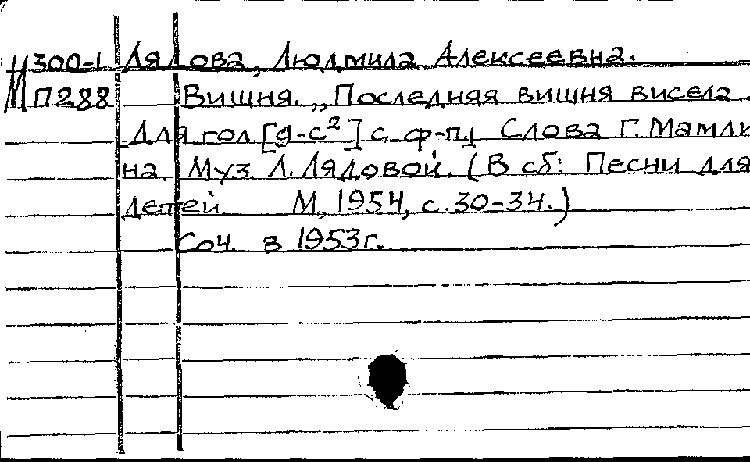 М 300-1 Лядова, Людмила Алексеевна.
П288 Вишня. „Последняя вишня висела.
Для гол [d-c²] с ф-п. Слова Г. Мамли
на. Муз. Л. Лядовой. (В сб: Песни для
детей. М, 1954, с. 30-34.)
Соч. в 1953г.